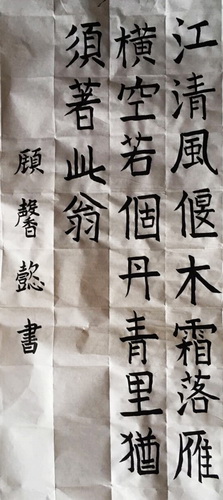 江清風偃木霜落雁
橫空若個丹青里猶
須著此翁
顧馨懿書